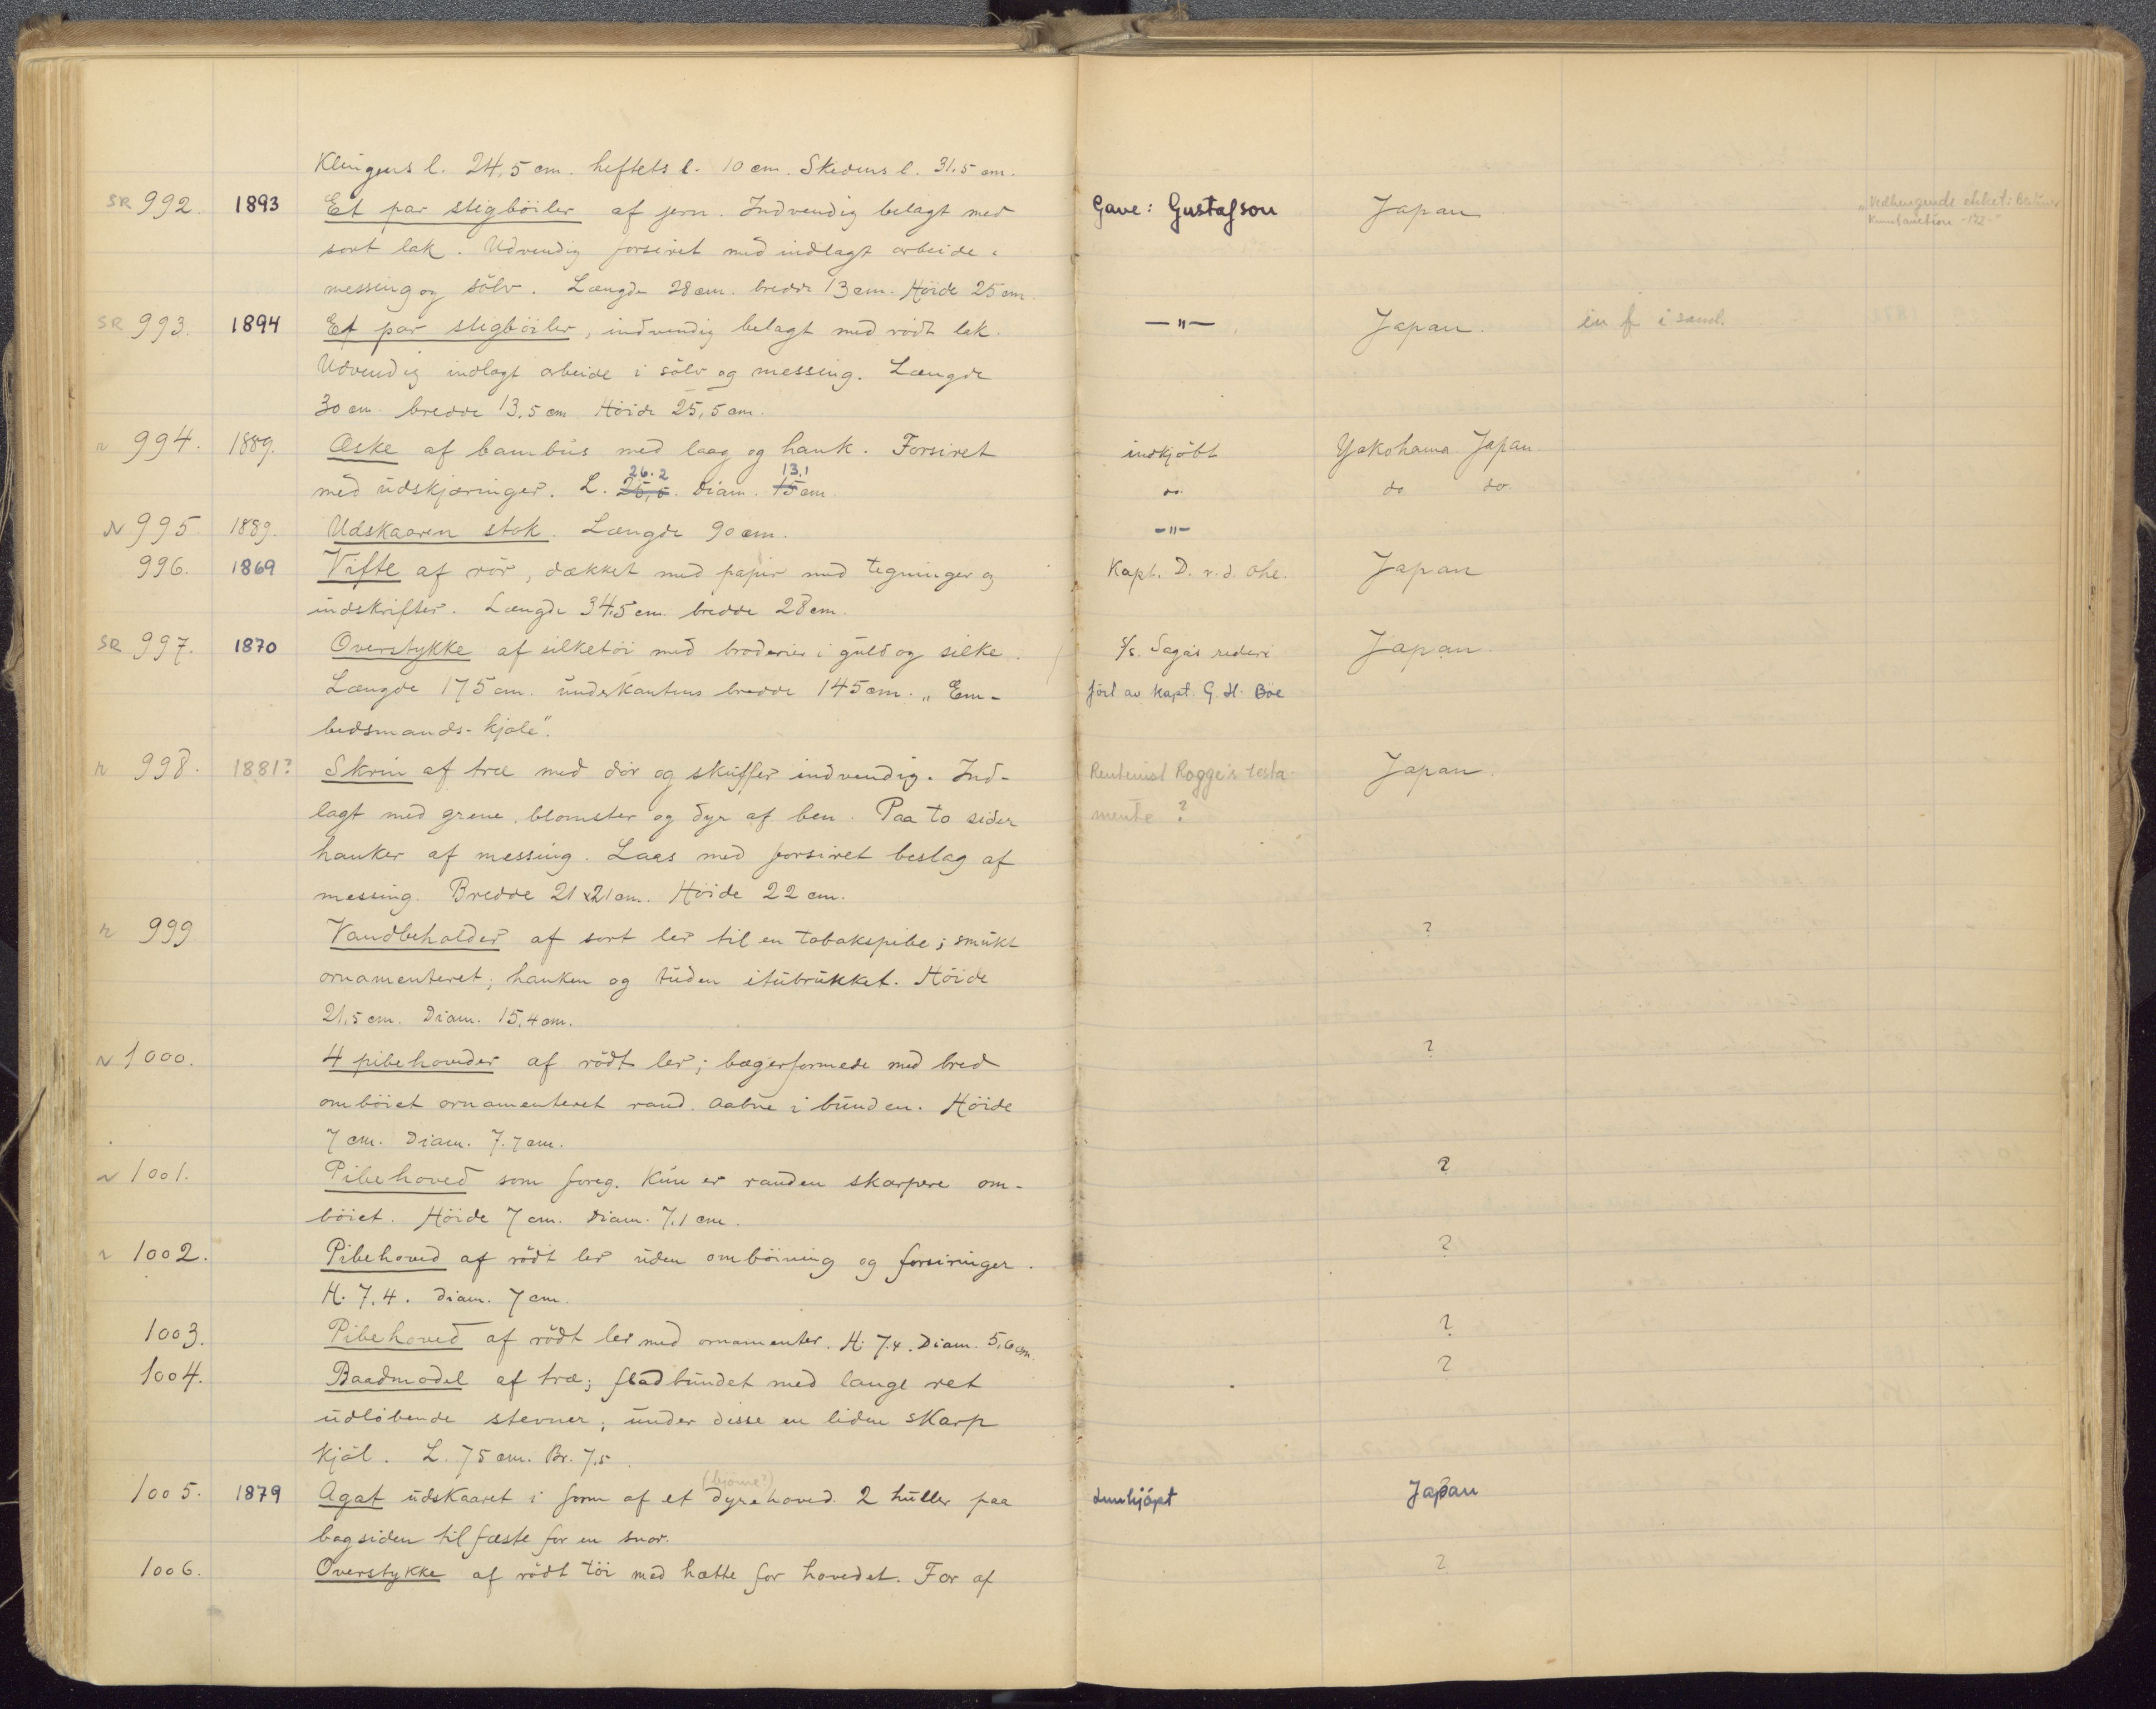 Klingens l. 24,5 cm. heftets l. 10 cm. Skedens l. 31.5 cm.
SR 992. 1893 Et par stigbøiler af jern. Indvendig belagt med Gave: Gustafson Japan „Vedhengende etiket: Berliner
sort lak. Udvendig forsiret med indlagt arbeide i Kunstauction -172-"
messing og sölv. Længde 28 cm. bredde 13 cm. Höide 25 cm.
SR 993. 1894 Et par stigbøiler, indvendig belagt med rödt lak. —"— Japan. i saml.
Udvendig indlagt arbeide i sölv og messing. Længde
30 cm. bredde 13.5 cm. Höide 25,5 cm.
n 994. 1889. Æske af bambus med laag og hank. Forsiret indkjöbt Yokohama Japan.
26.2 13.1
med udskjæringer. L. 25,5. Diam. 15 cm. do. do do.
N 995. 1889. Udskaaren stok. Længde 90 cm. —"—
996. 1869 Vifte af rör, dækket med papir med tegninger og Kapt. D. v. d. Ohe. Japan
indskrifter. Længde 34,5 cm. bredde 28 cm.
SR 997. 1870 Overstykke af silketöi med broderier i guld og silke. S/s. Saga's rederi Japan.
Længde 175 cm. underkantens bredde 145 cm. „Em- fört av Kapt. G. H. Böe
bedsmands-kjole".
n 998. 1881? Skrin af træ med dör og skuffer indvendig. Ind- Rentenist Rogge's testa- Japan.
lagt med grene, blomster og dyr af ben. Paa to sider mente ?
hanker af messing. Laas med forsiret beslag af
messing. Bredde 21 x 21 cm. Höide 22 cm.
n 999 Vandbeholder af sort ler til en tobakspibe; smukt ?
ornamenteret; hanken og tuden itubrukket. Höide
21,5 cm. Diam. 15,4 cm.
N 1000. 4 pibehoveder af rödt ler; bægerformede med bred ?
omböiet ornamenteret rand. Aabne i bunden. Höide
7 cm. Diam. 7.7 cm.
N 1001. Pibehoved som foreg. Kun er randen skarpere om- ?
böiet. Höide 7 cm. Diam. 7.1 cm.
n 1002. Pibehoved af rödt ler uden omböining og forsiringer. ?
H. 7.4. Diam. 7 cm.
1003. Pibehoved af rödt ler med ornamenter. H. 7.4. Diam. 5,6 cm. ?
1004. Baadmodel af træ; fladbundet med lange ret ?
udlöbende stevner; under disse en liden skarp
kjöl. L. 75 cm. Br. 7.5.
(bjørne?)
1005. 1879 Agat udskaaret i form af et dyrehoved. 2 huller paa Innkjöpt Japan
bagsiden til fæste for en snor.
1006. Overstykke af rödt töi med hætte for hovedet. For af ?